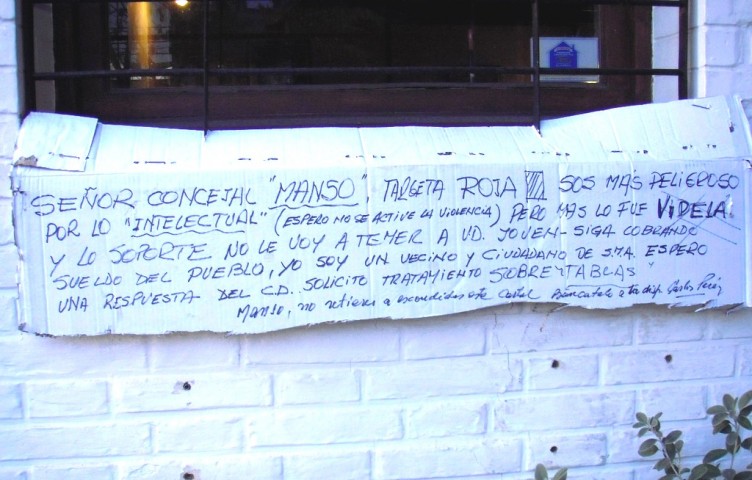 SEÑOR CONCEJAL "MANSO", TARGETA ROJA SOS MAS PELIGROSO
POR LO "INTELECTUAL" (ESPERO NO SE ACTIVE LA VIOLENCIA) PERO MAS LO FUE VIDELA
Y LO SOPORTE NO LE VOY A TEMER A UD. JOVEN - SIGA COBRANDO
SUELDO DEL PUEBLO, YO SOY UN VECINO Y CIUDADANO DE S.M.A. ESPERO
UNA RESPUESTA DEL C.D. SOLICITO TRATAMIENTO SOBRE "TABLAS"
Manso, no retires a escondidas este Cartel Carlos